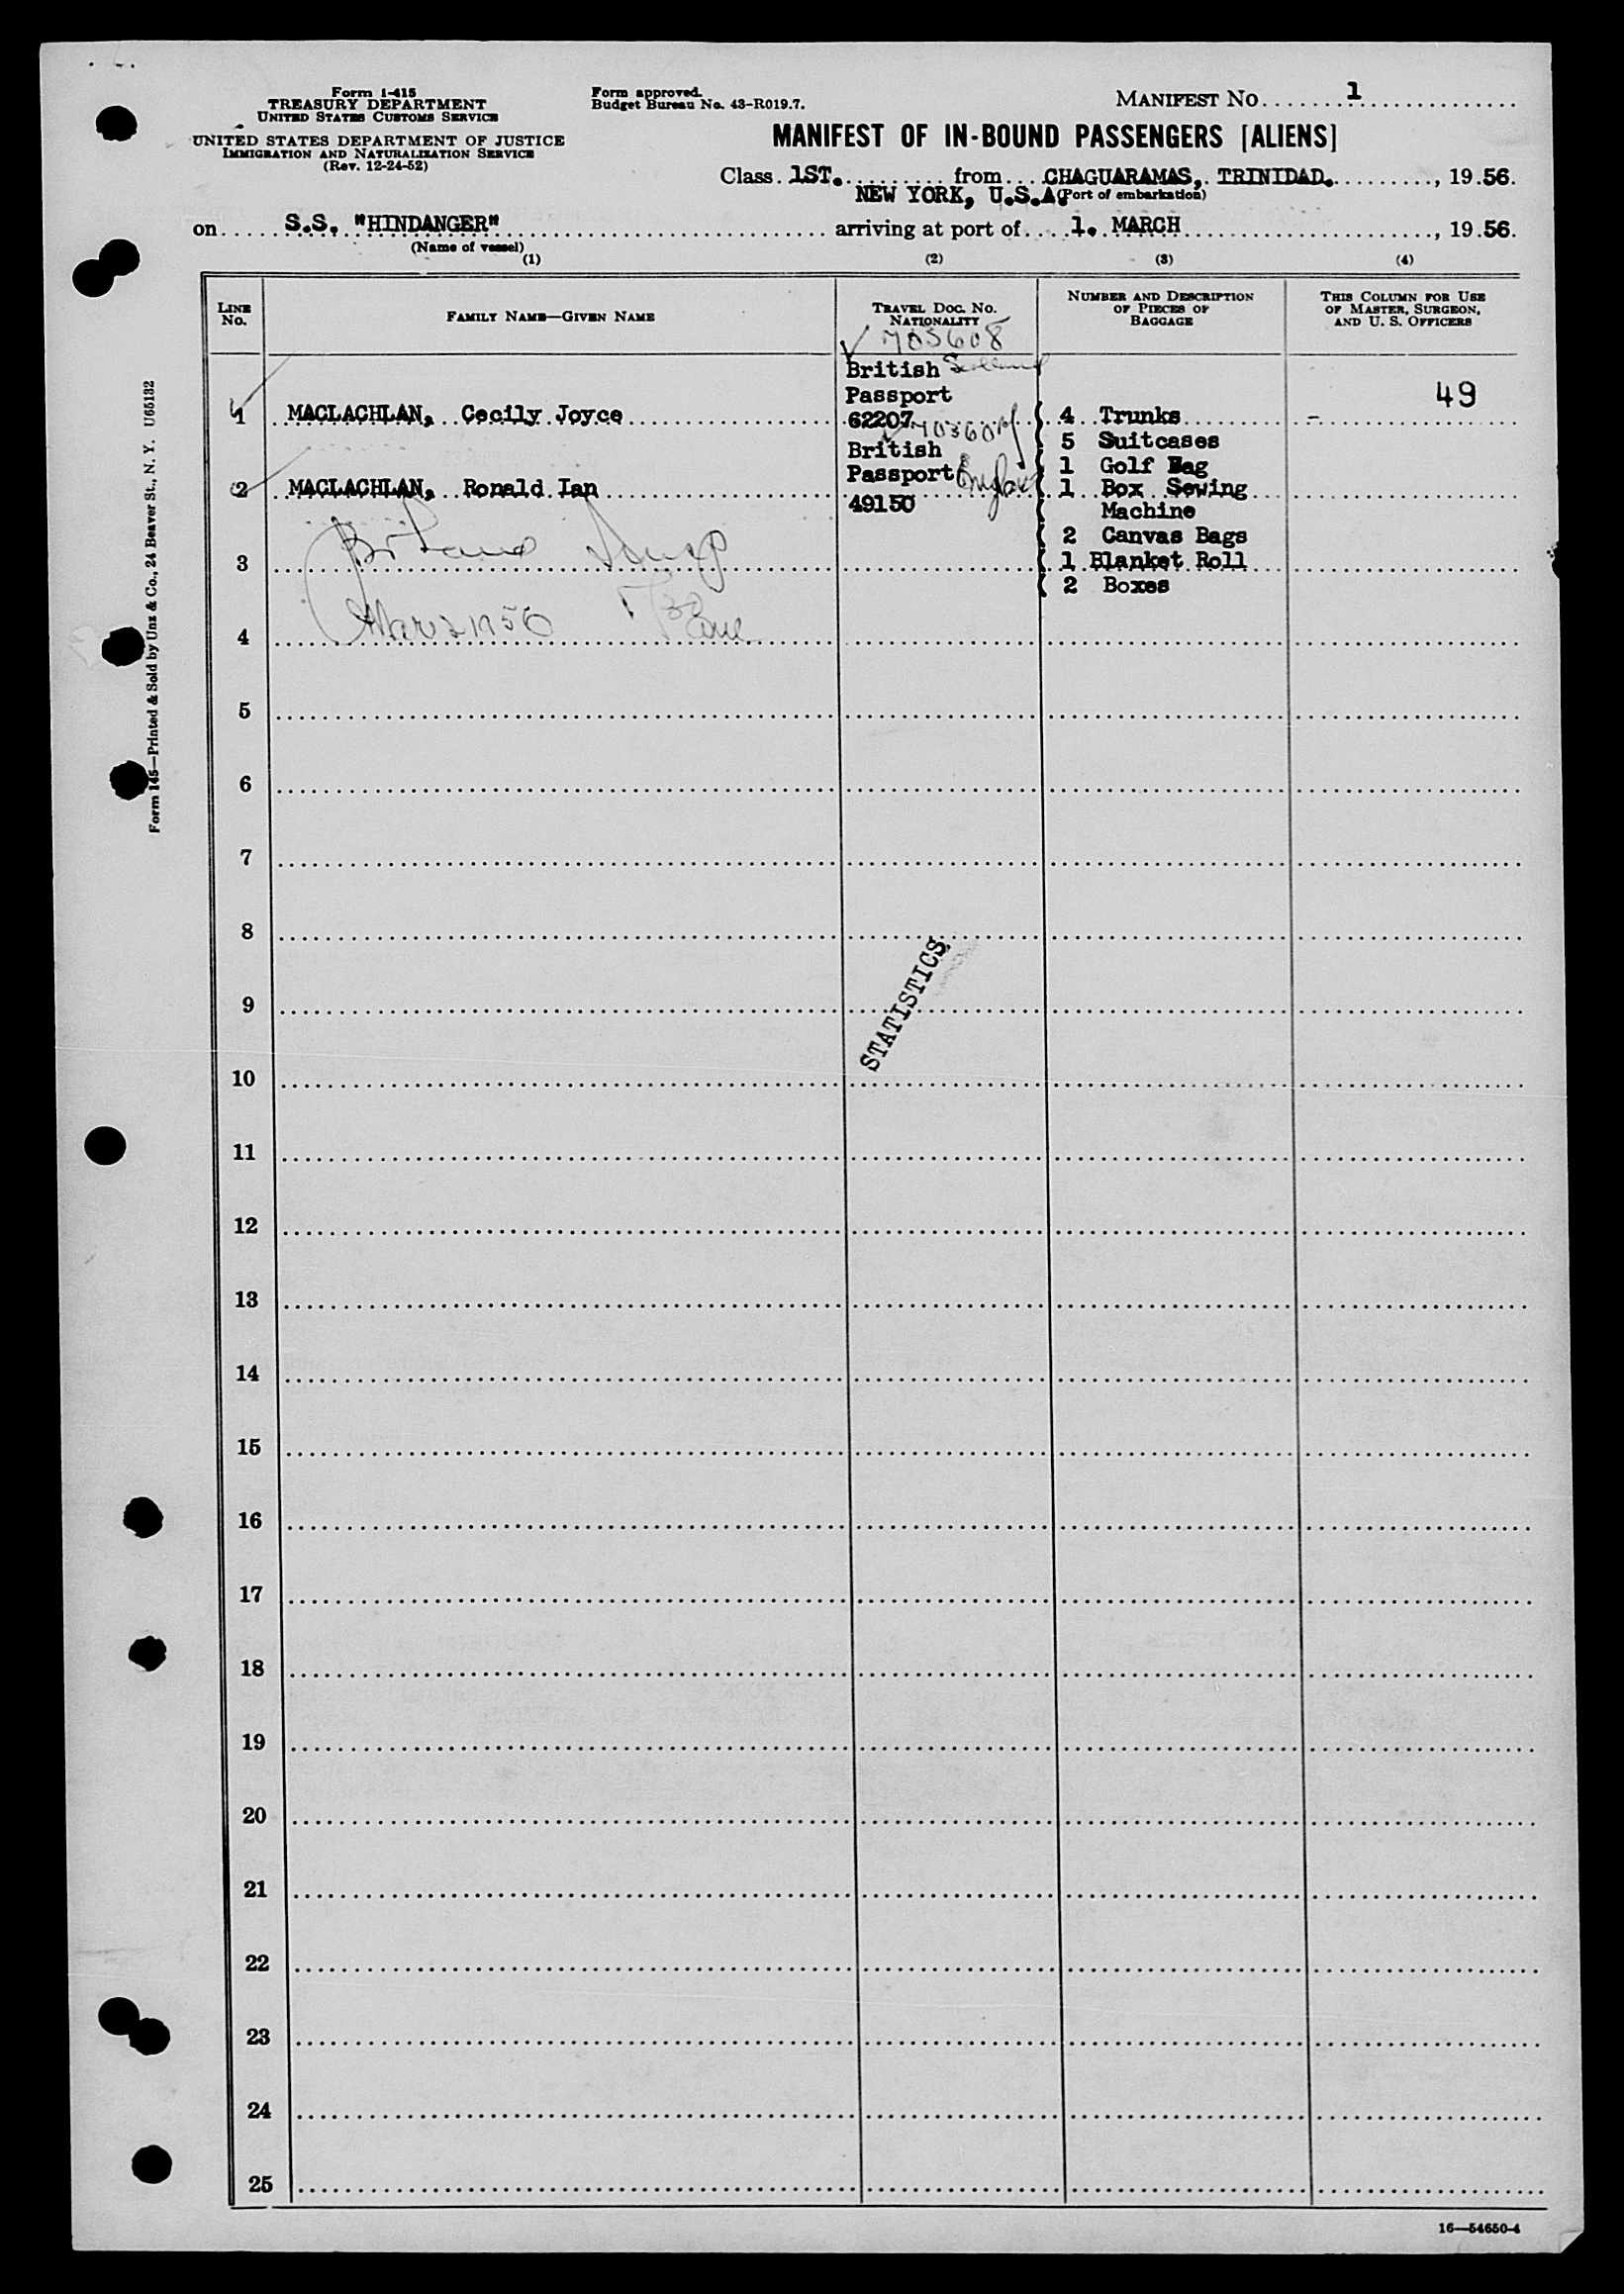 Form I-415
TREASURY DEPARTMENT
UNITED STATES CUSTOMS SERVICE
UNITED STATES DEPARTMENT OF JUSTICE
IMMIGRATION AND NATURALIZATION SERVICE
(Rev. 12-24-52)
Form approved.
Budget Bureau No. 43-R019.7.
MANIFEST NO. 1
MANIFEST OF IN-BOUND PASSENGERS [ALIENS]
Class 1ST. from CHAGUARAMAS, TRINIDAD. , 19 56.
NEW YORK, U.S.A. (Port of embarkation)
on S.S. "HINDANGER" arriving at port of 1. MARCH , 19 56.
(Name of vessel)
(1) (2) (3) (4)
LINE NO.
FAMILY NAME—GIVEN NAME
TRAVEL DOC. NO.
NATIONALITY
NUMBER AND DESCRIPTION
OF PIECES OF
BAGGAGE
THIS COLUMN FOR USE
OF MASTER, SURGEON,
AND U. S. OFFICERS
703608
British Scotland
Passport
49
1 MACLACHLAN, Cecily Joyce 62207 4 Trunks
British 5 Suitcases
Passport England 1 Golf Bag
2 MACLACHLAN, Ronald Ian 1 Box Sewing
49150 Machine
2 Canvas Bags
3 1 Blanket Roll
2 Boxes
Mar 2 1956
4
5
6
7
8
STATISTICS
9
10
11
12
13
14
15
16
17
18
19
20
21
22
23
24
25
16—54650-4
Form 145—Printed & Sold by Unz & Co., 24 Beaver St., N. Y. U65132